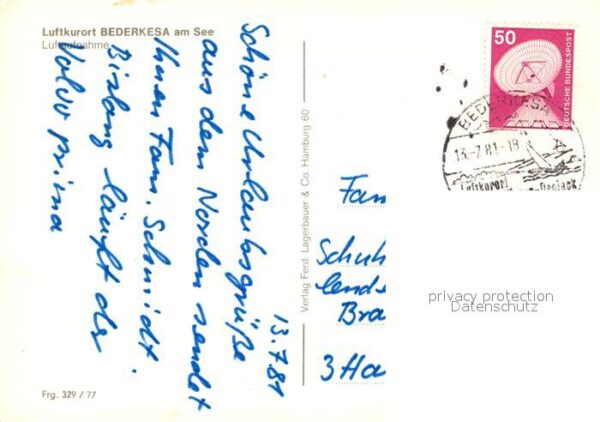 Luftkurort BEDERKESA am See
Luftaufnahme
13.7.81
Schöne Urlaubsgrüße
aus dem Norden sendet
Ihnen Fam. Schmidt.
Bislang läuft der
Volvo prima
Frg. 329 / 77
Verlag Ferd. Lagerbauer & Co. Hamburg 60
50
DEUTSCHE BUNDESPOST
BEDERKESA
13.-7.81-19
Luftkurort
Fam
Schuh
lends
Bra
3 Ha
privacy protection
Datenschutz